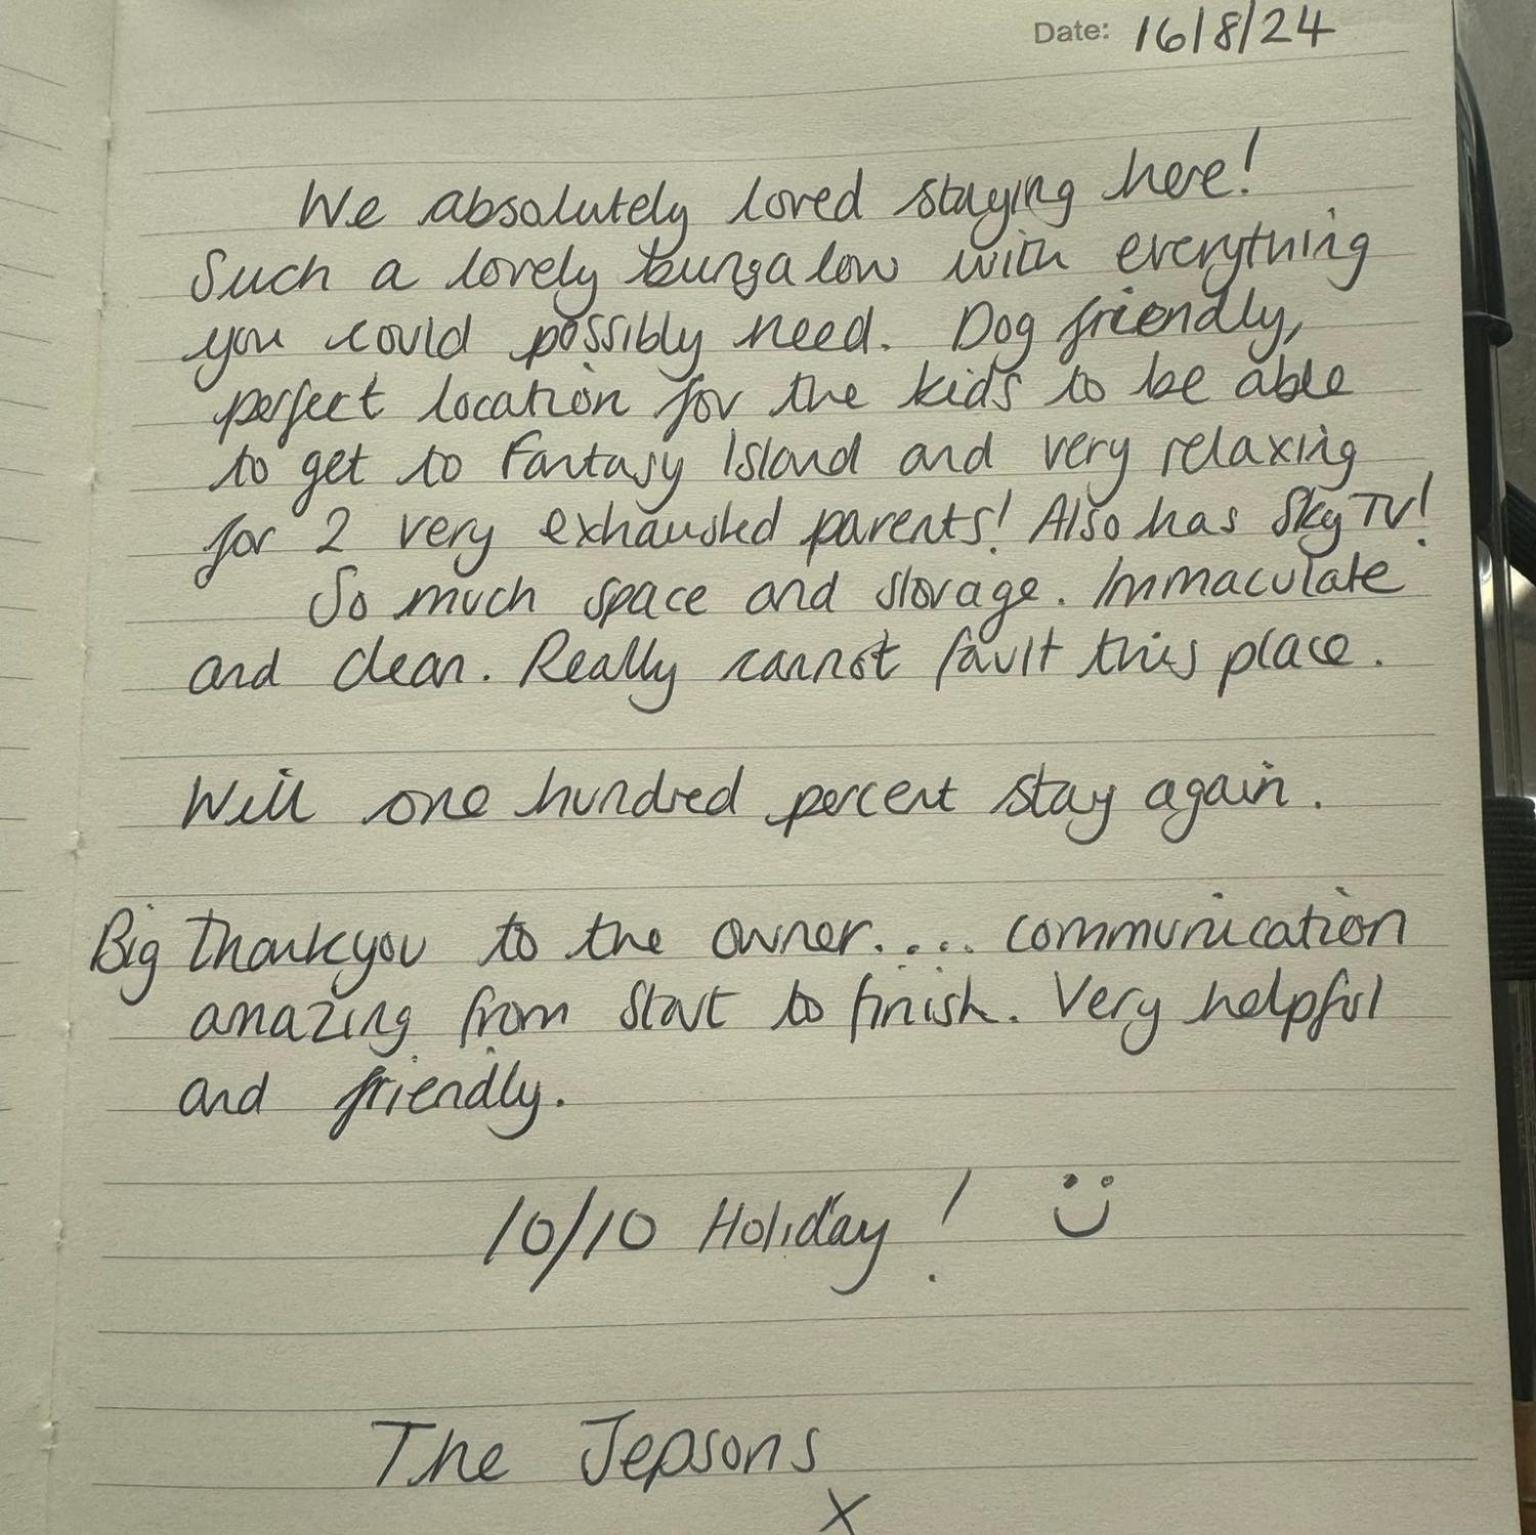 Date: 16/8/24
We absolutely loved staying here!
Such a lovely bungalow with everything
you could possibly need. Dog friendly,
perfect location for the kids to be able
to get to Fantasy Island and very relaxing
for 2 very exhausted parents! Also has Sky TV!
So much space and storage. Immaculate
and clean. Really cannot fault this place.
Will one hundred percent stay again.
Big thankyou to the owner.... communication
amazing from start to finish. Very helpful
and friendly.
10/10 Holiday!
The Jepsons
x